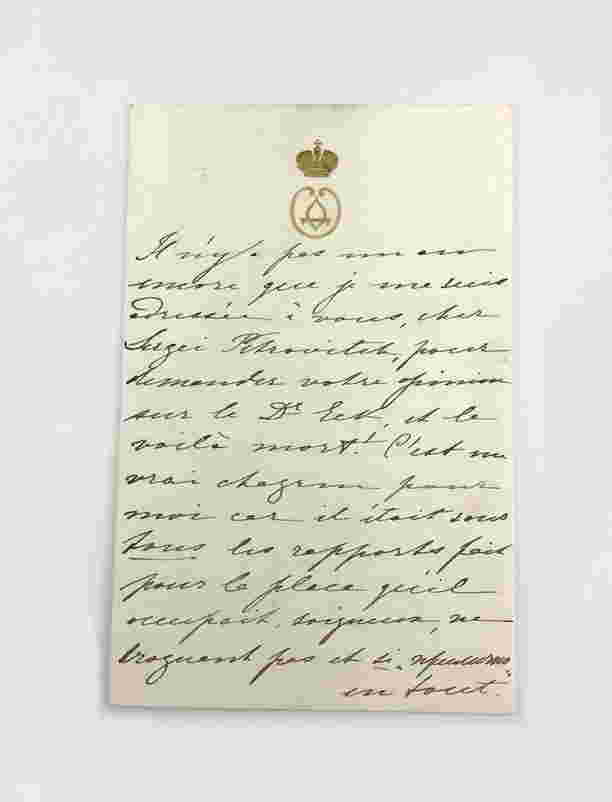 Il n'y a pas un an
encore que je me suis
adressée à vous, cher
Sergei Petrovitch, pour
demander votre opinion
sur le Dr Eck, et le
voilà mort! C'est un
vrai chagrin pour
moi car il était sous
tous les rapports fait
pour la place qu'il
occupait, soigneux, ne
droguant pas et si
en tout.